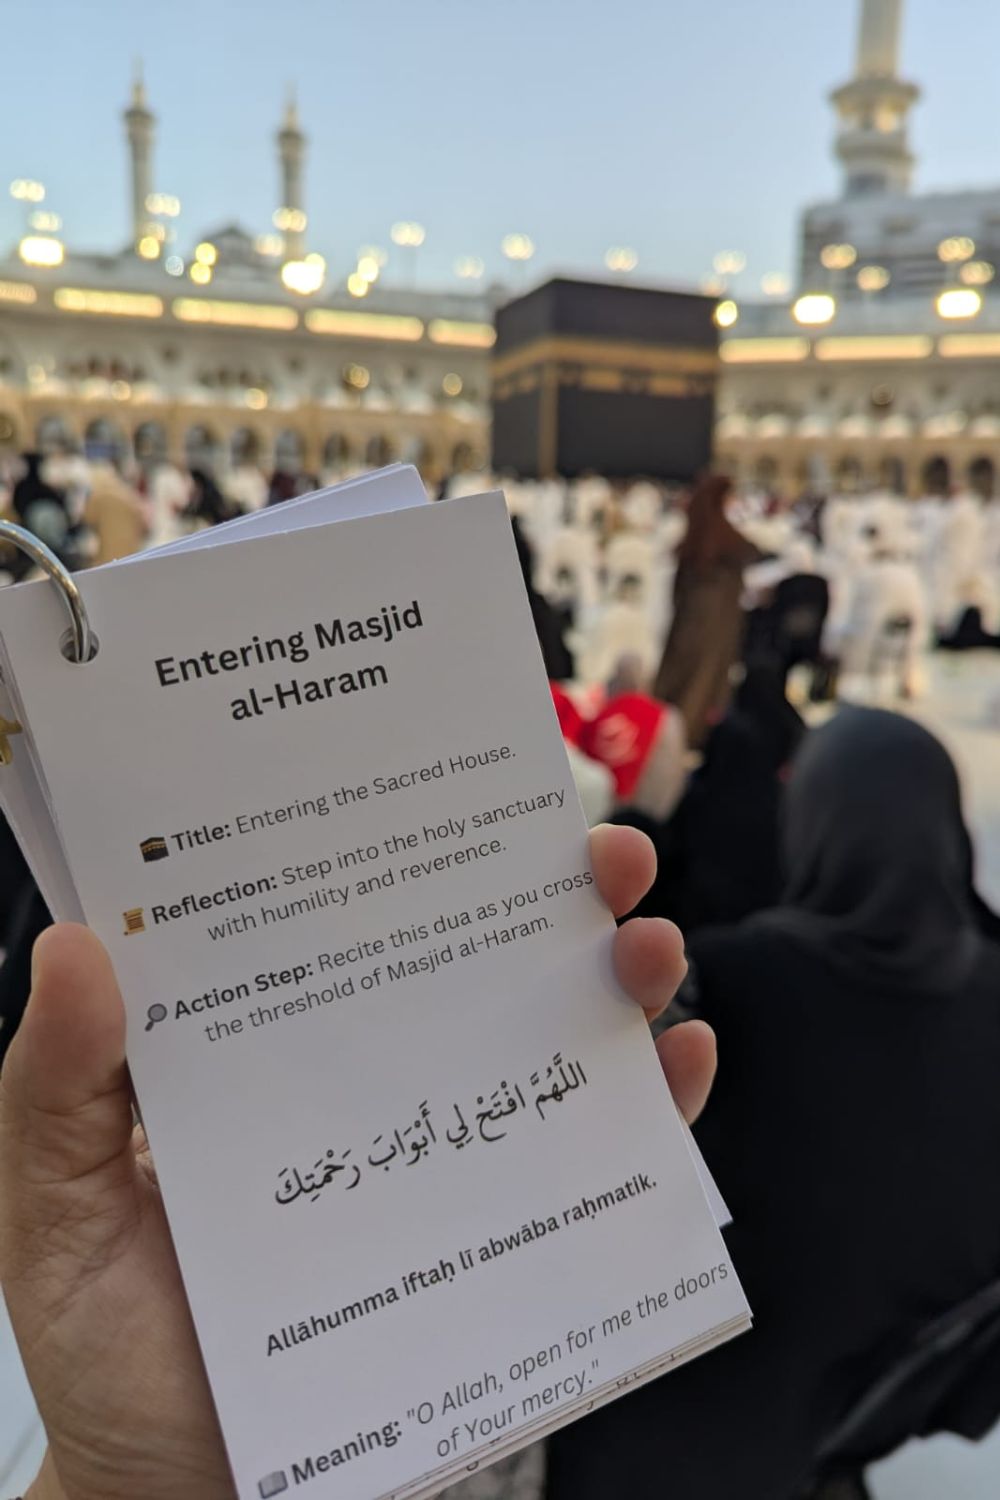 Entering Masjid
al-Haram
🕋 Title: Entering the Sacred House.
📜 Reflection: Step into the holy sanctuary
with humility and reverence.
🔎 Action Step: Recite this dua as you cross
the threshold of Masjid al-Haram.
اللَّهُمَّ افْتَحْ لِي أَبْوَابَ رَحْمَتِكَ
Allāhumma iftaḥ lī abwāba raḥmatik.
📖 Meaning: "O Allah, open for me the doors
of Your mercy."